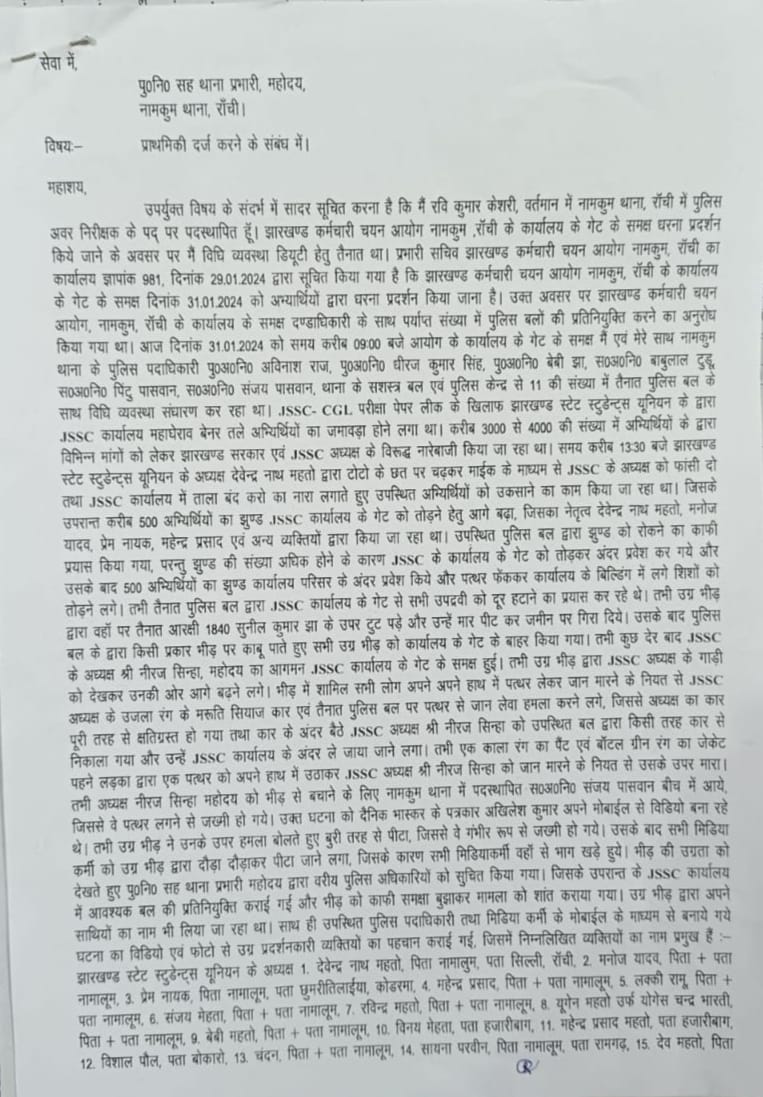 सेवा में,
पु०नि० सह थाना प्रभारी, महोदय,
नामकुम थाना, राँची।
विषयः– प्राथमिकी दर्ज करने के संबंध में।
महाशय,
उपर्युक्त विषय के संदर्भ में सादर सूचित करना है कि मैं रवि कुमार केशरी, वर्तमान में नामकुम थाना, रॉची में पुलिस
अवर निरीक्षक के पद् पर पदस्थापित हूँ। झारखण्ड कर्मचारी चयन आयोग नामकुम ,रॉची के कार्यालय के गेट के समक्ष धरना प्रदर्शन
किये जाने के अवसर पर मैं विधि व्यवस्था डियूटी हेतु तैनात था। प्रभारी सचिव झारखण्ड कर्मचारी चयन आयोग नामकुम, रॉची का
कार्यालय ज्ञापांक 981, दिनांक 29.01.2024 द्वारा सूचित किया गया है कि झारखण्ड कर्मचारी चयन आयोग नामकुम, रॉची के कार्यालय
के गेट के समक्ष दिनांक 31.01.2024 को अभ्यार्थियों द्वारा धरना प्रदर्शन किया जाना है। उक्त अवसर पर झारखण्ड कर्मचारी चयन
आयोग, नामकुम, रॉची के कार्यालय के समक्ष दण्डाधिकारी के साथ पर्याप्त संख्या में पुलिस बलों की प्रतिनियुक्ति करने का अनुरोध
किया गया था। आज दिनांक 31.01.2024 को समय करीब 09:00 बजे आयोग के कार्यालय के गेट के समक्ष मैं एवं मेरे साथ नामकुम
थाना के पुलिस पदाधिकारी पु०अ०नि० अविनाश राज, पु०अ०नि० धीरज कुमार सिंह, पु०अ०नि० बेबी झा, स०अ०नि० बाबुलाल टुडू,
स०अ०नि० पिंटु पासवान, स०अ०नि० संजय पासवान, थाना के सशस्त्र बल एवं पुलिस केन्द्र से 11 की संख्या में तैनात पुलिस बल के
साथ विधि व्यवस्था संधारण कर रहा था। JSSC- CGL परीक्षा पेपर लीक के खिलाफ झारखण्ड स्टेट स्टुडेन्ट्स यूनियन के द्वारा
JSSC कार्यालय महाघेराव बेनर तले अभ्यिर्थियों का जमावड़ा होने लगा था। करीब 3000 से 4000 की संख्या में अभ्यिर्थियों के द्वारा
विभिन्न मांगों को लेकर झारखण्ड सरकार एवं JSSC अध्यक्ष के विरूद्ध नारेबाजी किया जा रहा था। समय करीब 13:30 बजे झारखण्ड
स्टेट स्टुडेन्ट्स यूनियन के अध्यक्ष देवेन्द्र नाथ महतो द्वारा टोटो के छत पर चढ़कर माईक के माध्यम से JSSC के अध्यक्ष को फांसी दो
तथा JSSC कार्यालय में ताला बंद करो का नारा लगाते हुए उपस्थित अभ्यिर्थियों को उकसाने का काम किया जा रहा था। जिसके
उपरान्त करीब 500 अभ्यिर्थियों का झुण्ड JSSC कार्यालय के गेट को तोड़ने हेतु आगे बढ़ा, जिसका नेतृत्व देवेन्द्र नाथ महतो, मनोज
यादव, प्रेम नायक, महेन्द्र प्रसाद एवं अन्य व्यक्तियों द्वारा किया जा रहा था। उपस्थित पुलिस बल द्वारा झुण्ड को रोकने का काफी
प्रयास किया गया, परन्तु झुण्ड की संख्या अधिक होने के कारण JSSC के कार्यालय के गेट को तोड़कर अंदर प्रवेश कर गये और
उसके बाद 500 अभ्यिर्थियों का झुण्ड कार्यालय परिसर के अंदर प्रवेश किये और पत्थर फेंककर कार्यालय के बिल्डिंग में लगे शिशों को
तोड़ने लगे। तभी तैनात पुलिस बल द्वारा JSSC कार्यालय के गेट से सभी उपद्रवी को दूर हटाने का प्रयास कर रहे थे। तभी उग्र भीड़
द्वारा वहॉ पर तैनात आरक्षी 1840 सुनील कुमार झा के उपर टुट पड़े और उन्हें मार पीट कर जमीन पर गिरा दिये। उसके बाद पुलिस
बल के द्वारा किसी प्रकार भीड़ पर काबू पाते हुए सभी उग्र भीड़ को कार्यालय के गेट के बाहर किया गया। तभी कुछ देर बाद JSSC
के अध्यक्ष श्री नीरज सिन्हा, महोदय का आगमन JSSC कार्यालय के गेट के समक्ष हुई। तभी उग्र भीड़ द्वारा JSSC अध्यक्ष के गाड़ी
को देखकर उनकी ओर आगे बढने लगे। भीड़ में शामिल सभी लोग अपने अपने हाथ में पत्थर लेकर जान मारने के नियत से JSSC
अध्यक्ष के उजला रंग के मरूति सियाज कार एवं तैनात पुलिस बल पर पत्थर से जान लेवा हमला करने लगे, जिससे अध्यक्ष का कार
पूरी तरह से क्षतिग्रस्त हो गया तथा कार के अंदर बैठे JSSC अध्यक्ष श्री नीरज सिन्हा को उपस्थित बल द्वारा किसी तरह कार से
निकाला गया और उन्हें JSSC कार्यालय के अंदर ले जाया जाने लगा। तभी एक काला रंग का पैंट एवं बॉटल ग्रीन रंग का जेकेट
पहने लड़का द्वारा एक पत्थर को अपने हाथ में उठाकर JSSC अध्यक्ष श्री नीरज सिन्हा को जान मारने के नियत से उसके उपर मारा।
तभी अध्यक्ष नीरज सिन्हा महोदय को भीड़ से बचाने के लिए नामकुम थाना में पदस्थापित स०अ०नि० संजय पासवान बीच में आये,
जिससे वे पत्थर लगने से जख्मी हो गये। उक्त घटना को दैनिक भास्कर के पत्रकार अखिलेश कुमार अपने मोबाईल से विडियो बना रहे
थे। तभी उग्र भीड़ ने उनके उपर हमला बोलते हुए बुरी तरह से पीटा, जिससे वे गंभीर रूप से जख्मी हो गये। उसके बाद सभी मिडिया
कर्मी को उग्र भीड़ द्वारा दौड़ा दौड़ाकर पीटा जाने लगा, जिसके कारण सभी मिडियाकर्मी वहॉं से भाग खड़े हुये। भीड़ की उग्रता को
देखते हुए पु०नि० सह थाना प्रभारी महोदय द्वारा वरीय पुलिस अधिकारियों को सुचित किया गया। जिसके उपरान्त के JSSC कार्यालय
में आवश्यक बल की प्रतिनियुक्ति कराई गई और भीड़ को काफी समक्षा बुझाकर मामला को शांत कराया गया। उग्र भीड़ द्वारा अपने
साथियों का नाम भी लिया जा रहा था। साथ ही उपस्थित पुलिस पदाधिकारी तथा मिडिया कर्मी के मोबाईल के माध्यम से बनाये गये
घटना का विडियो एवं फोटो से उग्र प्रदर्शनकारी व्यक्तियों का पहचान कराई गई, जिसमें निम्नलिखित व्यक्तियों का नाम प्रमुख हैं :–
झारखण्ड स्टेट स्टुडेन्ट्स यूनियन के अध्यक्ष 1. देवेन्द्र नाथ महतो, पिता नामालुम, पता सिल्ली, रॉची, 2. मनोज यादव, पिता + पता
नामालूम, 3. प्रेम नायक, पिता नामालूम, पता छुमरीतिलाईया, कोडरमा, 4. महेन्द्र प्रसाद, पिता + पता नामालूम, 5. लक्की रामू, पिता +
पता नामालूम, 6. संजय मेहता, पिता + पता नामालूम, 7. रविन्द्र महतो, पिता + पता नामालूम, 8. यूगेन महतो उर्फ योगेस चन्द्र भारती,
पिता + पता नामालूम, 9. बेबी महतो, पिता + पता नामालूम, 10. विनय मेहता, पता हजारीबाग, 11. महेन्द्र प्रसाद महतो, पता हजारीबाग,
12. विशाल पौल, पता बोकारो, 13. चंदन, पिता + पता नामालूम, 14. सायना परवीन, पिता नामालूम, पता रामगढ़, 15. देव महतो, पिता